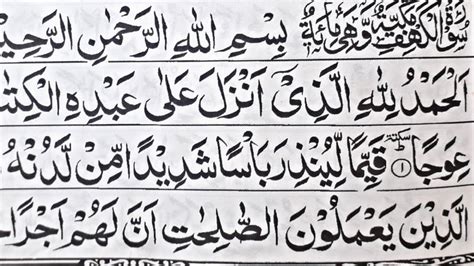 سُوۡرَةُ الۡكَهۡفِ مَكِّيَّةٌ وَّهِىَ مِائَةٌ بِسۡمِ اللّٰهِ الرَّحۡمٰنِ الرَّحِيۡ
اَلۡحَمۡدُ لِلّٰهِ الَّذِىۡۤ اَنۡزَلَ عَلٰى عَبۡدِهِ الۡكِتٰ
عِوَجًا ؕ سكتة ۱ قَيِّمًا لِّيُنۡذِرَ بَاۡسًا شَدِيۡدًا مِّنۡ لَّدُنۡهُ
الَّذِيۡنَ يَعۡمَلُوۡنَ الصّٰلِحٰتِ اَنَّ لَهُمۡ اَجۡرًا حَ